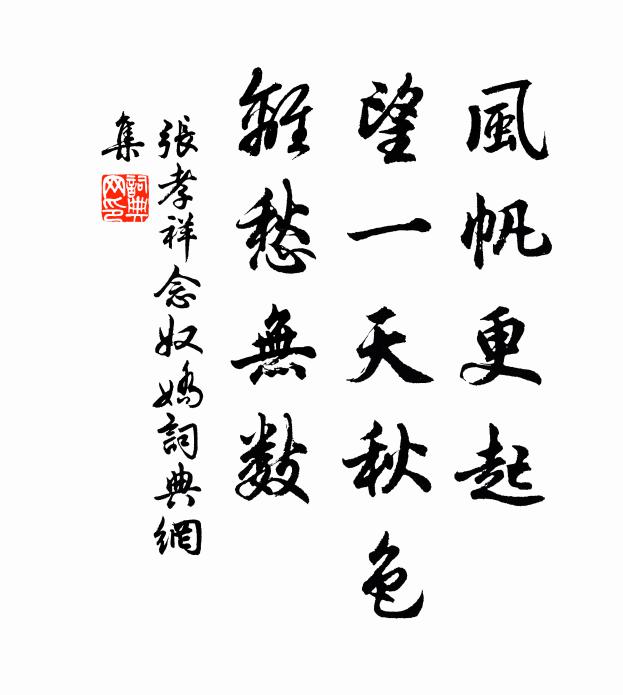 風帆更起
望一天秋色
離愁無数
張孝祥念奴嬌詞典網
集
詞典
网印